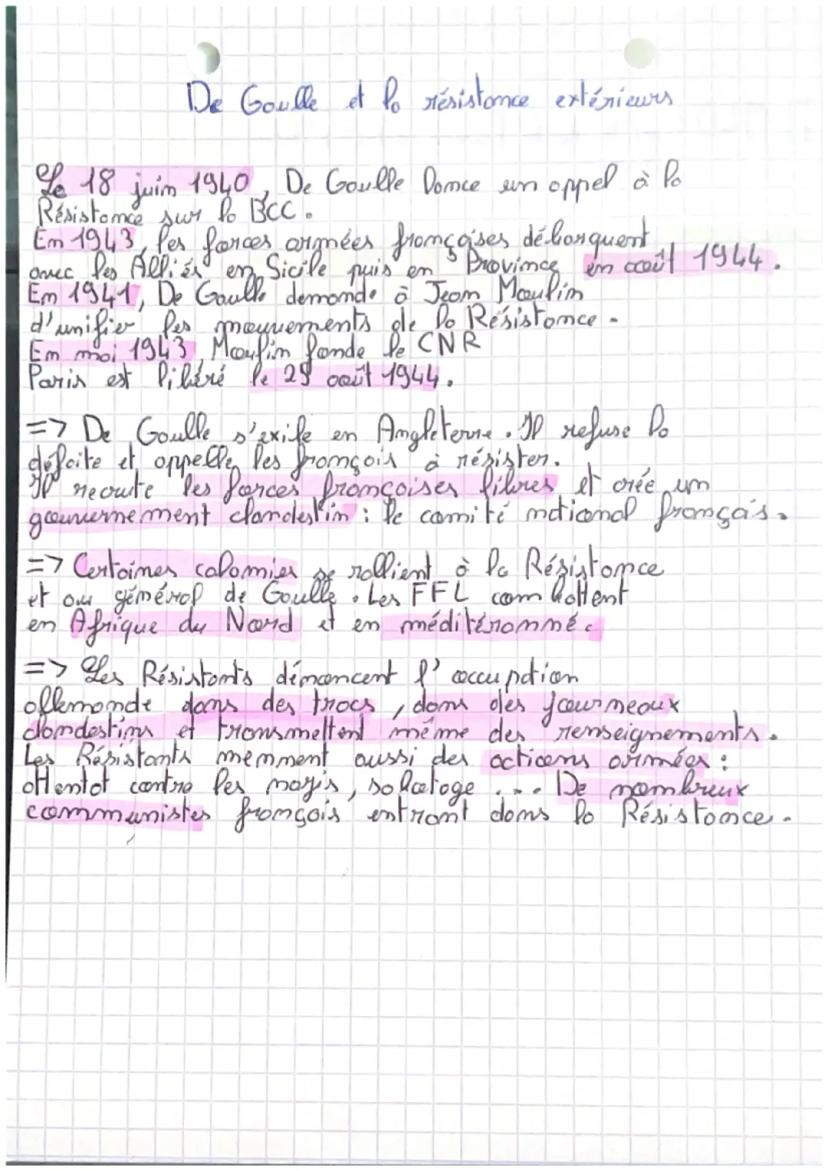 De Gaulle et la résistance extérieurs
Le 18 juin 1940, De Gaulle Donce un appel à la
Résistance sur la BCC.
En 1943, les forces armées françaises débarquent
avec les Alliés en Sicile puis en Province en août 1944.
En 1941, De Gaulle demande à Jean Moulin
d'unifier les mouvements de la Résistance.
En mai 1943, Moulin fonde le CNR
Paris est libéré le 25 août 1944.
=> De Gaulle s'exile en Angleterre. Il refuse la
défaite et appelle les français à résister.
Il recrute les forces françaises libres et crée un
gouvernement clandestin : le comité national français.
=> Certaines colonies se rallient à la Résistance
et au général de Gaulle. Les FFL combattent
en Afrique du Nord et en méditéranné.
=> Les Résistants dénoncent l'occupation
allemande dans des tracs, dans des journeaux
clandestins et transmettent même des renseignements.
Les Résistants memment aussi des actions armées :
attentat contre les nazis, sabotage ... De nombreux
communistes français entrant dans la Résistance.